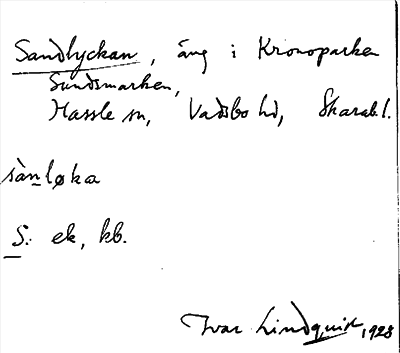 Sandlyckan, äng i Kronoparken
Sundsmarken,
Hassle sn, Vadsbo hd, Skarab. l.
sànløka
S: ek, kb.
Ivar Lindquist, 1928